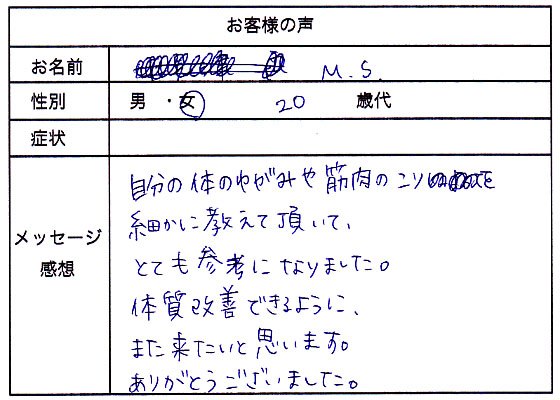 お客様の声
お名前 M.S.
性別 男・女 20 歳代
症状
メッセージ
感想
自分の体のゆがみや筋肉のコリを
細かに教えて頂いて、
とても参考になりました。
体質改善できるように、
また来たいと思います。
ありがとうございました。